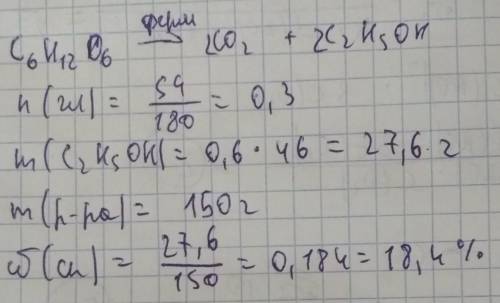 C₆H₁₂O₆ —ферм→ 2CO₂ + 2C₂H₅OH
n(гл) = 54/180 = 0,3
m(C₂H₅OH) = 0,6 · 46 = 27,6 г
m(р-ра) = 150 г
ω(сп) = 27,6/150 = 0,184 = 18,4 %